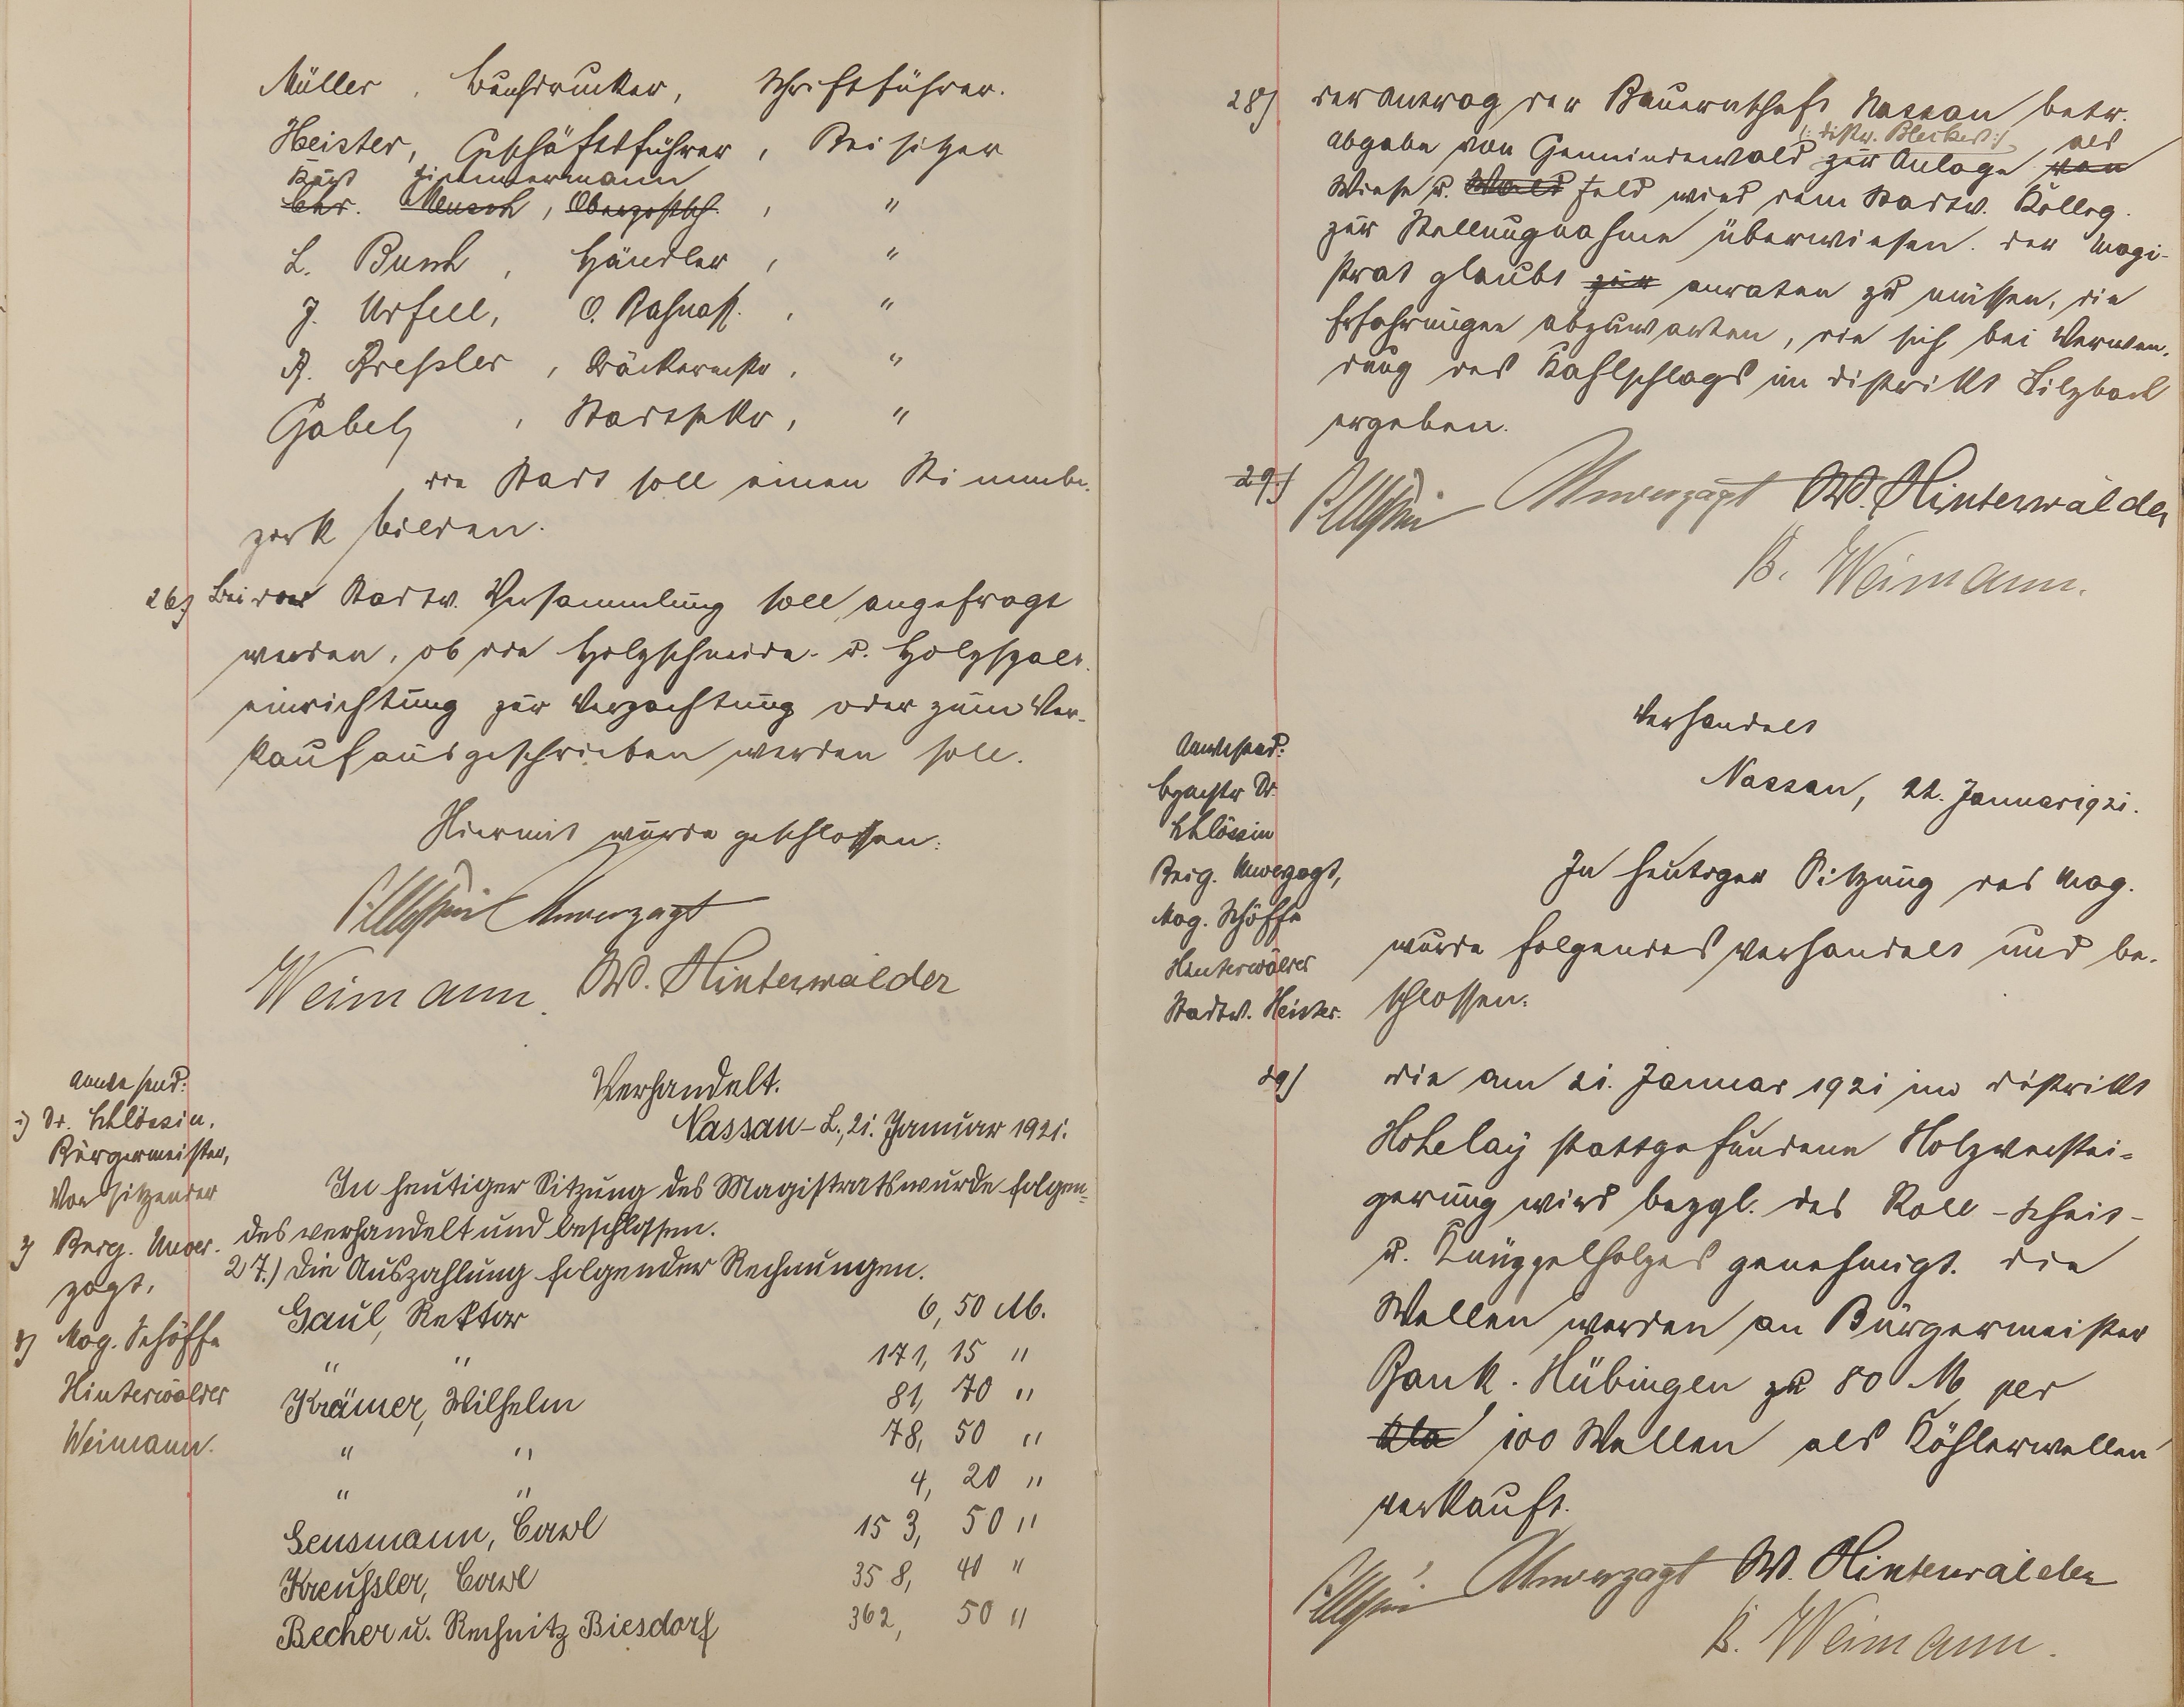 Müller, Buchdrucker, Schriftführer.
Heister, Geschäftsführer, Beisitzer
Karl Zimmermann
Chr. Busch, Oberpostsch. , "
L. Busch, Händler, "
J. Urfell, O. Bahnass. , "
A. Bressler, Bäckermstr, "
Gabel, Stadtsekr, "
die Stadt soll einen Stimmbe-
zirk bilden.
26) Bei der Stadtv. Versammlung soll angefragt
werden, ob die Holzschneide- u. Holzspalt-
einrichtung zur Verpachtung oder zum Ver-
kauf ausgeschrieben werden soll.
Hiermit wurde geschlossen.
Unverzagt
Weimann. W. Hinterwälder
Anwesend:
1) Dr. Schlössin,
Bürgermeister,
Vorsitzender
2) Beig. Unver-
zagt,
3) Mag. Schöffe
Hinterwälder
Weimann.
Verhandelt.
Nassau-L., 21. Januar 1921.
In heutiger Sitzung des Magistrats wurde folgen-
des verhandelt und beschlossen.
27.) Die Auszahlung folgender Rechnungen.
Gaul, Rektor 6,50 M.
" " 171,15 "
Krämer, Wilhelm 81,70 "
" " 78,50 "
" " 4,20 "
Gensmann, Carl 153,50 "
Kreußler, Carl 358,40 "
Becher u. Rechnitz Biesdorf 362,50 "
28) der Antrag der Bauernschaft Nassau betr.
Abgabe von Gemeindewald (: Distr. :) zur Anlage von als
Wiese u. Wald Feld wird dem Stadtv. Kolleg.
zur Stellungnahme überwiesen. der Magi-
strat glaubt zur anraten zu müssen, die
Erfahrungen abzuwarten, die sich bei Verwen-
dung des Kahlschlags im Distrikt Silzbach
ergeben.
29.)
Unverzagt W. Hinterwälder
K. Weimann.
Verhandelt
Nassau, 22. Januar 1921.
Anwesend:
Bgmstr Dr.
Schlössin
Beig. Unverzagt,
Mag. Schöffe
Hinterwälder
Stadtv. Heister.
In heutiger Sitzung des Mag.
wurde folgendes verhandelt und be-
schlossen.
29) die am 21. Januar 1921 im Distrikt
Hohelay stattgefundene Holzverstei-
gerung wird bezgl. des Roll-Scheit-
u. Knüppelholzes genehmigt. die
Wellen werden an Bürgermeister
Hübingen zu 80 M per
Kla 100 Wellen als Köhlerwellen
verkauft.
Unverzagt W. Hinterwälder
K. Weimann.